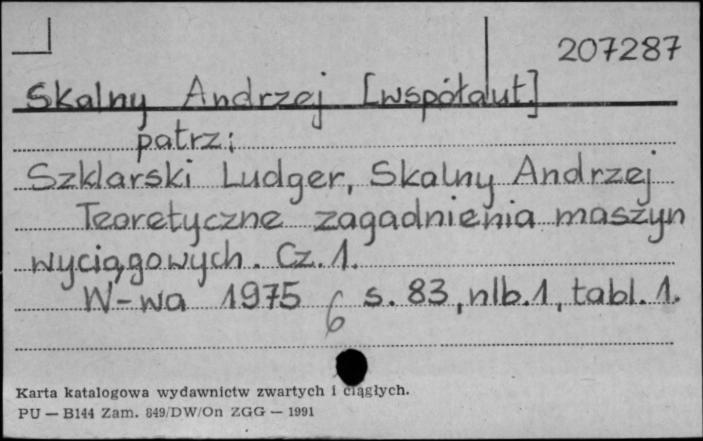 207287
Skalny Andrzej [współaut.]
patrz:
Szklarski Ludger, Skalny Andrzej
Teoretyczne zagadnienia maszyn
wyciągowych. Cz. 1.
W-wa 1975 s. 83, nlb. 1, tabl. 1.
6
Karta katalogowa wydawnictw zwartych i ciągłych.
PU — B144 Zam. 849/DW/On ZGG — 1991